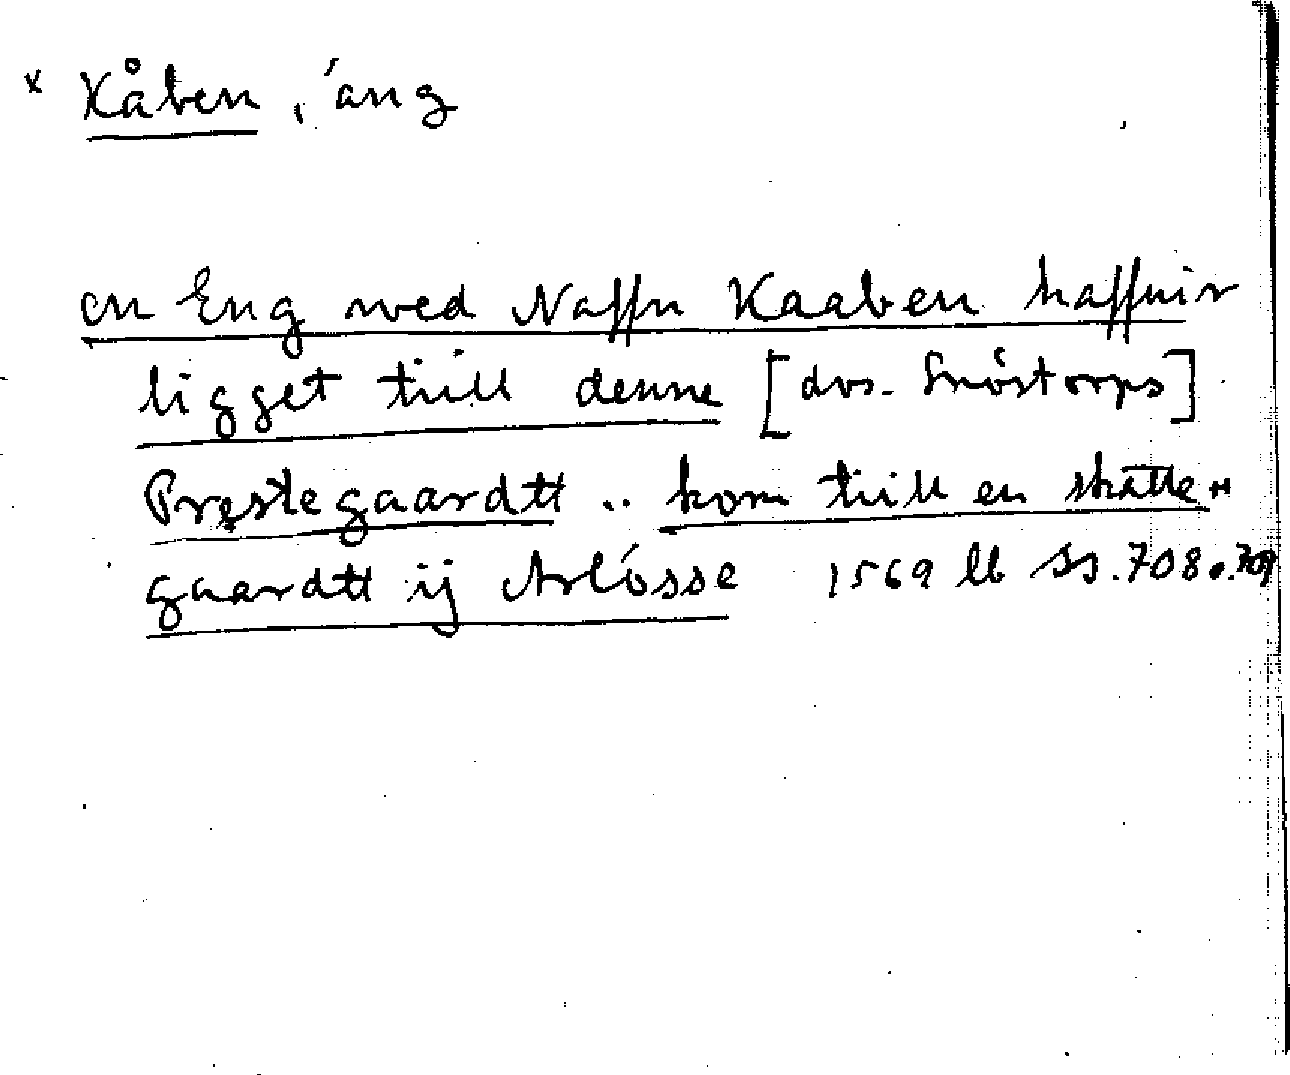 x Kåben, äng
en Eng med Naffn Kaaben haffuir
ligget tiill denne [dvs. Snöstorps]
Prestegaardtt .. kom tiill en skatte-
gaardtt ij Arlösse 1569 lb Ss. 708 o. 709